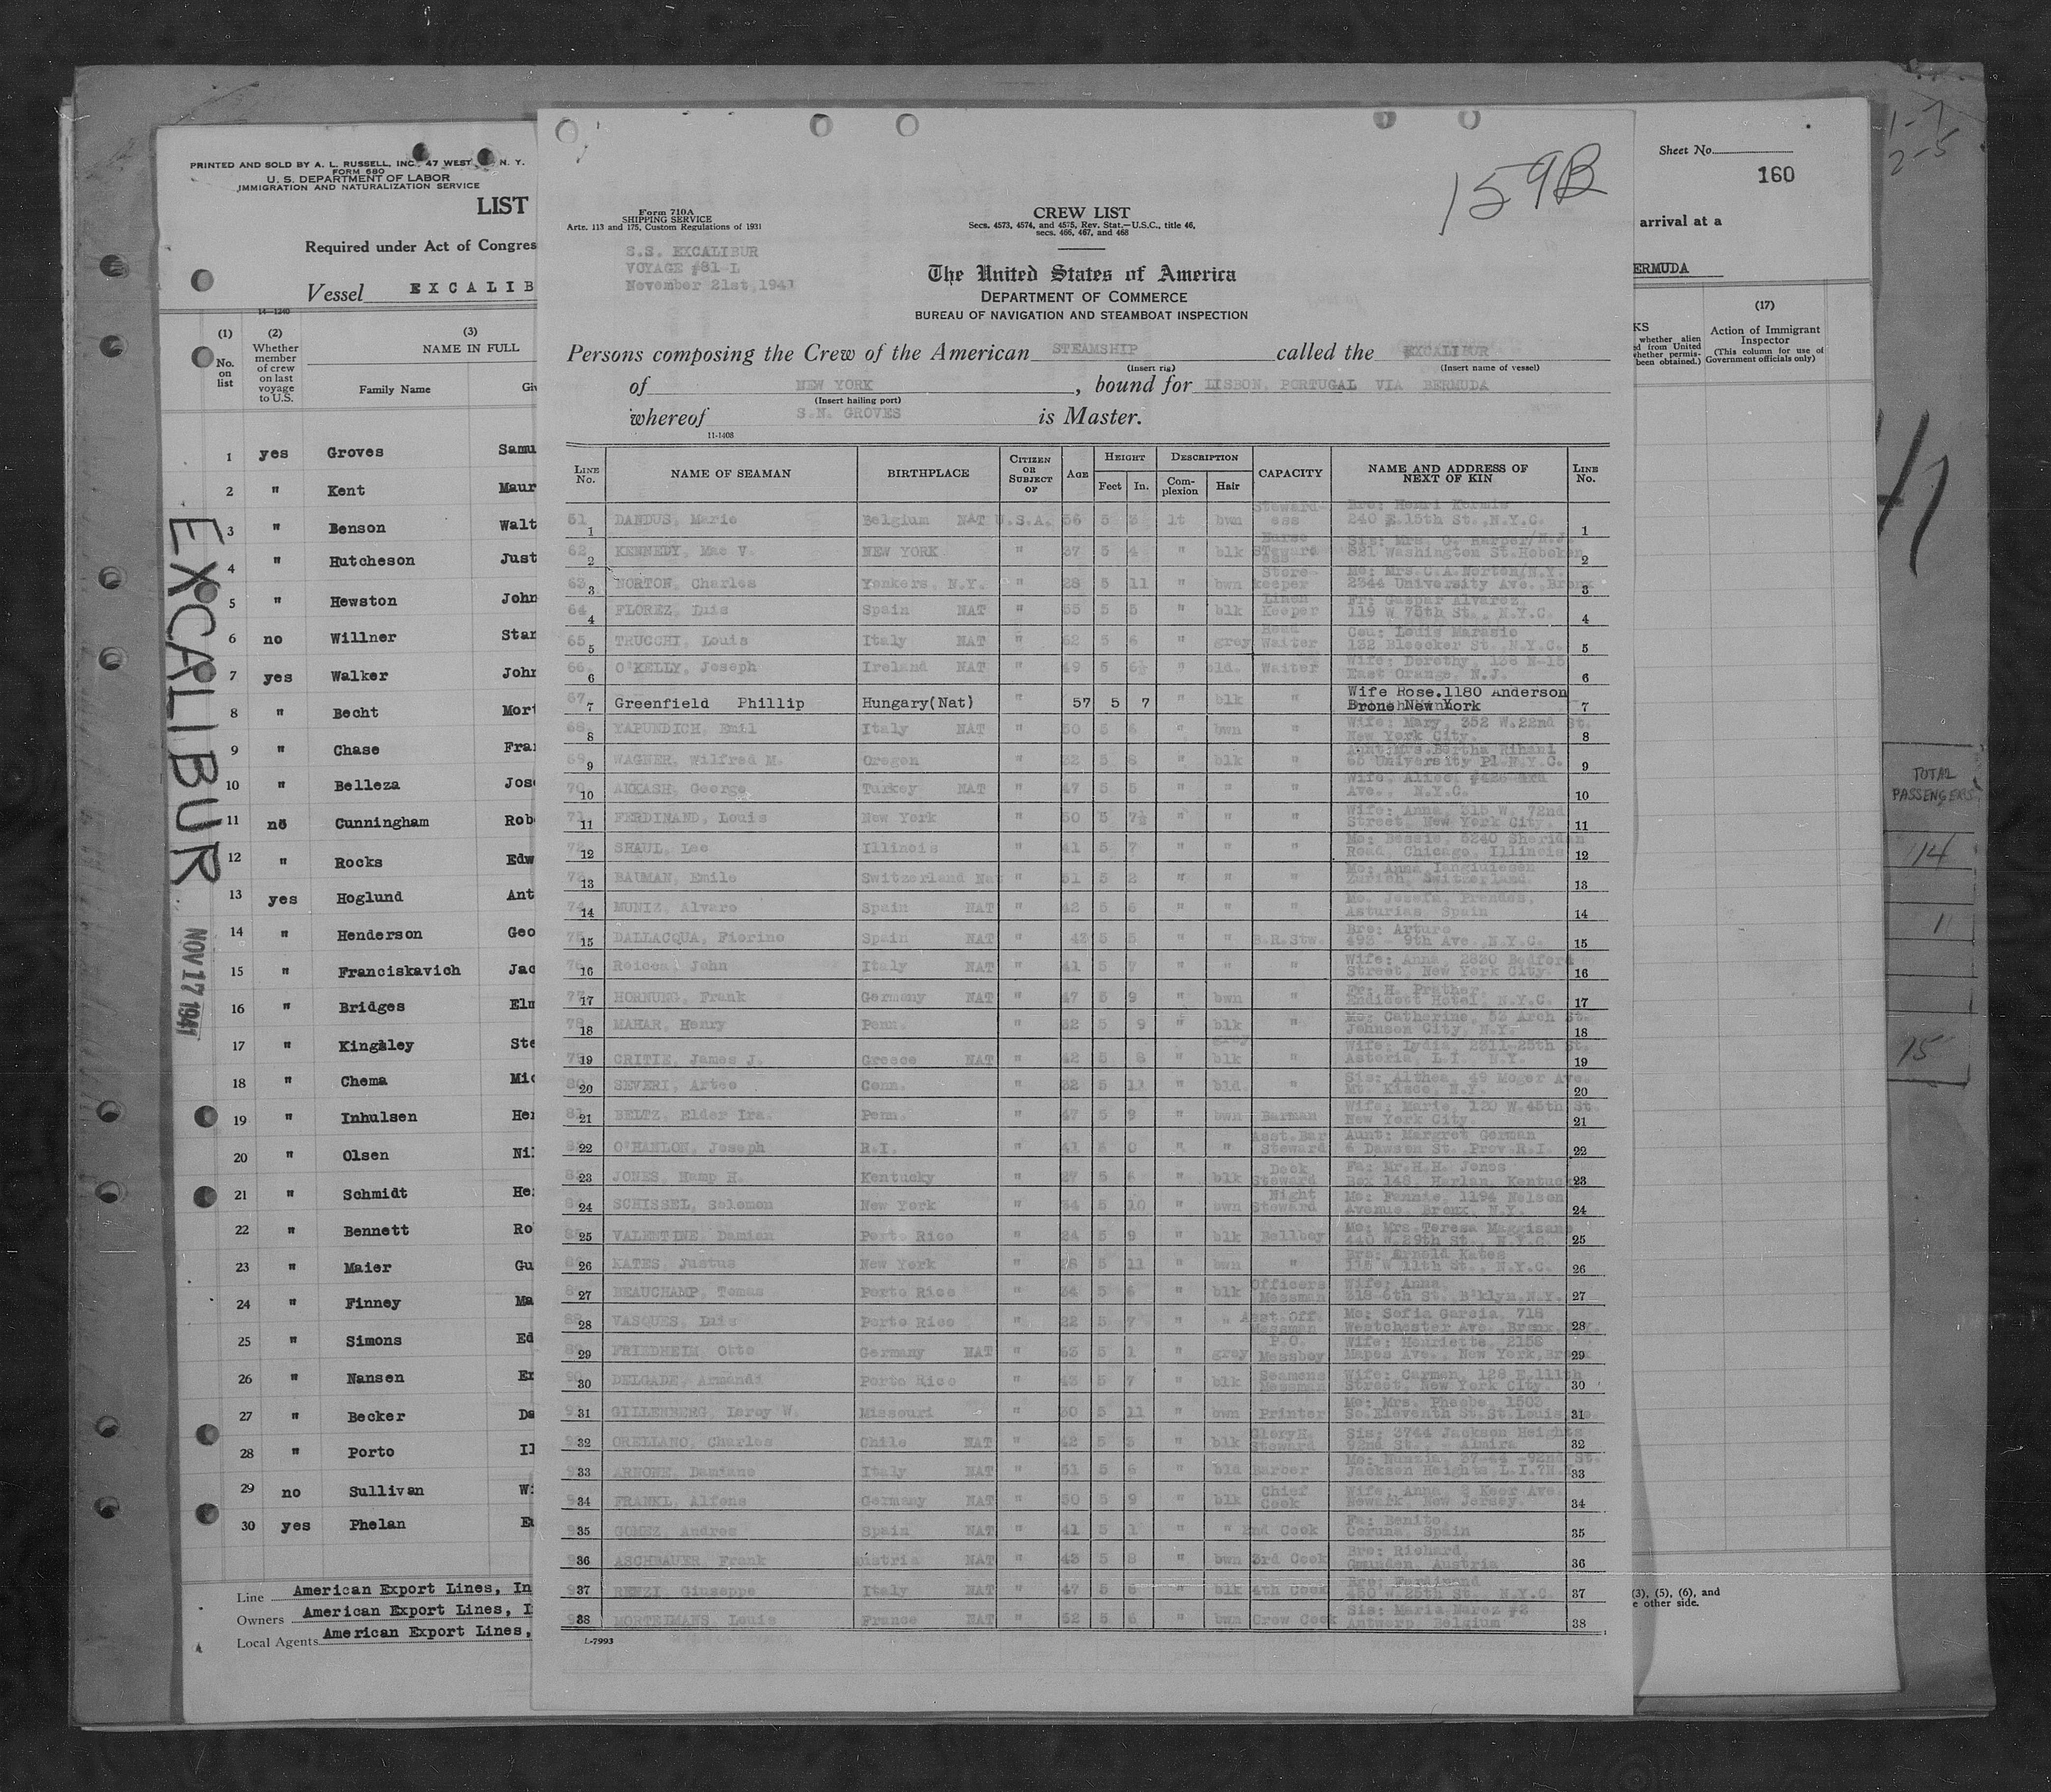 PRINTED AND SOLD BY A. L. RUSSELL, INC. 47 WEST N. Y.
FORM 680
U. S. DEPARTMENT OF LABOR
IMMIGRATION AND NATURALIZATION SERVICE
LIST
Required under Act of Congres
Vessel EXCALIB
14—1240
(1) (2) (3)
No. on list
Whether member of crew on last voyage to U.S.
NAME IN FULL
Family Name Giv
1 yes Groves Samu
2 " Kent Maur
3 " Benson Walt
4 " Hutcheson Just
5 " Hewston John
6 no Willner Star
7 yes Walker John
8 " Becht Mort
9 " Chase Fra
10 " Belleza Jos
11 no Cunningham Rob
12 " Rocks Edw
13 yes Hoglund Ant
14 " Henderson Geo
15 " Franciskavich Jac
16 " Bridges Elm
17 " Kingsley Ste
18 " Chema Mic
19 " Inhulsen He
20 " Olsen Ni
21 " Schmidt He
22 " Bennett Ro
23 " Maier Gu
24 " Finney Ma
25 " Simons Ed
26 " Nansen Er
27 " Becker Da
28 " Porto Il
29 no Sullivan W
30 yes Phelan Eu
Line American Export Lines, In
Owners American Export Lines, I
Local Agents American Export Lines,
EXCALIBUR
NOV 17 1941
159B
Form 710A
SHIPPING SERVICE
Arts. 113 and 175, Custom Regulations of 1931
CREW LIST
Secs. 4573, 4574, and 4575, Rev. Stat.—U.S.C., title 46,
secs. 466, 467, and 468
S.S. EXCALIBUR
VOYAGE #31 L
November 21st, 1941
The United States of America
DEPARTMENT OF COMMERCE
BUREAU OF NAVIGATION AND STEAMBOAT INSPECTION
Persons composing the Crew of the American STEAMSHIP called the EXCALIBUR
(Insert rig) (Insert name of vessel)
of NEW YORK, bound for LISBON, PORTUGAL VIA BERMUDA
(Insert hailing port)
whereof S.N. GROVES is Master.
11-1408
LINE No. NAME OF SEAMAN BIRTHPLACE CITIZEN OR SUBJECT OF AGE HEIGHT DESCRIPTION CAPACITY NAME AND ADDRESS OF NEXT OF KIN LINE No.
Feet In. Complexion Hair
1 DANDUS, Marie Belgium NAT U.S.A. 56 5 3 lt bwn Stewardess 240 E.15th St.,N.Y.C. 1
2 KENNEDY, Mae V. NEW YORK " 37 5 4 " blk Nurse Stewardess Sis: Mrs. C. Harper/N.J. 321 Washington St.Hoboken 2
3 NORTON, Charles Yonkers, N.Y. " 28 5 11 " bwn Storekeeper Mo: Mrs.C.A.Norton/N.Y. 2344 University Ave., Bronx 3
4 FLOREZ, Luis Spain NAT " 55 5 5 " blk Linen Keeper Fr: Gaspar Alvarez 119 W 75th St., N.Y.C. 4
5 TRUCCHI, Louis Italy NAT " 62 5 6 " grey Head Waiter Cou: Louis Marasio 132 Bleecker St. N.Y.C. 5
6 O'KELLY, Joseph Ireland NAT " 49 5 6½ " bld. Waiter Wife: Dorothy, East Orange, N.J. 6
7 Greenfield Phillip Hungary(Nat) " 57 5 7 " blk " Wife Rose.1180 Anderson New York 7
8 YAPUNDICH, Emil Italy NAT " 50 5 6 " bwn " Wife: Mary, 352 W.22nd St. New York City. 8
9 WAGNER, Wilfred M. Oregon " 32 5 8 " blk " Aunt:Mrs.Bertha Rihani 65 University Pl.N.Y.C. 9
10 AKKASH, George Turkey NAT " 47 5 5 " " " Wife, Alice, Ave., N.Y.C. 10
11 FERDINAND, Louis New York " 50 5 7½ " " " Wife: Anna, 315 W. 72nd Street, New York City. 11
12 SHAUL, Leo Illinois " 41 5 7 " " " Mo: Bessie, 5240 Sheridan Road, Chicago, Illinois 12
13 BAUMAN, Emile Switzerland Nat " 51 5 2 " " " Mo: Anna Zurich, Switzerland. 13
14 MUNIZ, Alvaro Spain NAT " 42 5 6 " " " Mo. Josefa, Prendes, Asturias Spain 14
15 DALLACQUA, Fiorino Spain NAT " 43 5 5 " " B.R.Stw. Bro: Arturo 493 - 9th Ave. N.Y.C. 15
16 John Italy NAT " 41 5 7 " " " Wife: Anna, 2830 Bedford Street, New York City. 16
17 HORNUNG, Frank Germany NAT " 47 5 9 " bwn " Fr: H. Prather, Endicott Hotel, N.Y.C. 17
18 MAHAR, Henry Penn. " 32 5 9 " blk " Mo: Catherine, 53 Arch St. Johnson City, N.Y. 18
19 CRITIE, James J. Greece NAT " 42 5 8 " grey blk " Wife: Lydia, 2311-25th St. Astoria, L.I. N.Y. 19
20 SEVERI, Arteo Conn. " 32 5 11 " bld. " Sis: Althea, 49 Moger Ave. Mt. Kisco, N.Y. 20
21 BELTZ, Elder Ira. Penn. " 47 5 9 " bwn Barman Wife: Marie, 120 W.45th St. New York City. 21
22 O'HANLON, Joseph R.I. " 41 0 " " Asst.Bar Steward Aunt: Margret Gorman 6 Dawson St. Prov.R.I. 22
23 JONES, Hamp H. Kentucky " 27 5 6 " blk Deck Steward Fa: Mr.H.H. Jones Box 146, Harlan, Kentucky 23
24 SCHISSEL, Solomon New York " 34 5 10 " bwn Night Steward Mo: Fannie, 1194 Nelson Avenue, Bronx, N.Y. 24
25 VALENTINE, Damian Porto Rico " 24 5 9 " blk Bellboy Mo: Mrs.Teresa Maggisano 440 W.29th St., N.Y.C. 25
26 KATES, Justus New York " 28 5 11 " bwn " Bro: Arnold Kates 115 W 11th St., N.Y.C. 26
27 BEAUCHAMP, Tomas Porto Rico " 34 5 6 " blk Officers Messman Wife: Anna, 318-6th St. B'klyn.N.Y. 27
28 VASQUES, Luis Porto Rico " 22 5 7 " " Asst.Off. Messman Mo: Sofia Garcia, 718 Westchester Ave. Bronx, 28
29 FRIEDHEIM, Otto Germany NAT " 53 5 1 " grey P.O. Messboy Wife: Henriette, 2158 Mapes Ave., New York,Bronx 29
30 DELGADE, Armandi Porto Rico " 43 5 7 " blk Seamens Messman Wife: Carmen, 128 E.111th Street, New York City. 30
31 GILLENBERG, Leroy W. Missouri " 30 5 11 " bwn Printer Mo: Mrs. Phoebe, 1503 So.Eleventh St.St.Louis 31
32 ORELLANO, Charles Chile NAT " 42 5 3 " blk GloryH. Steward Sis: 3744 Jackson Heights 92nd St., Almira 32
33 ARNONE, Damiano Italy NAT " 51 5 6 " bld Barber Mo: Nunzia, 37-44 -92nd St. Jackson Heights L.I. 33
34 FRANKL, Alfons Germany NAT " 50 5 9 " blk Chief Cook Wife, Anna, 2 Keer Ave. Newark, New Jersey. 34
35 GOMEZ, Andres Spain NAT " 41 5 1 " " 2nd Cook Fa: Benito, Coruna, Spain 35
36 ASCHBAUER, Frank Austria NAT " 43 5 8 " bwn 3rd Cook Bro: Richard, Gmunden, Austria 36
37 RENZI, Giuseppe Italy NAT " 47 5 6 " blk 4th Cook Bro: Ferdinand 450 W.25th St., N.Y.C. 37
38 MORTEIMANS, Louis France NAT " 52 5 6 " bwn Crew Cook Sis: Maria Antwerp, Belgium 38
L-7993
Sheet No.
160
arrival at a
ERMUDA
(17)
KS
whether alien
ed from United
whether permis-
been obtained.)
Action of Immigrant Inspector
(This column for use of Government officials only)
(3), (5), (6), and
e other side.
1-7
2-5
TOTAL
PASSENGERS
14
1
15